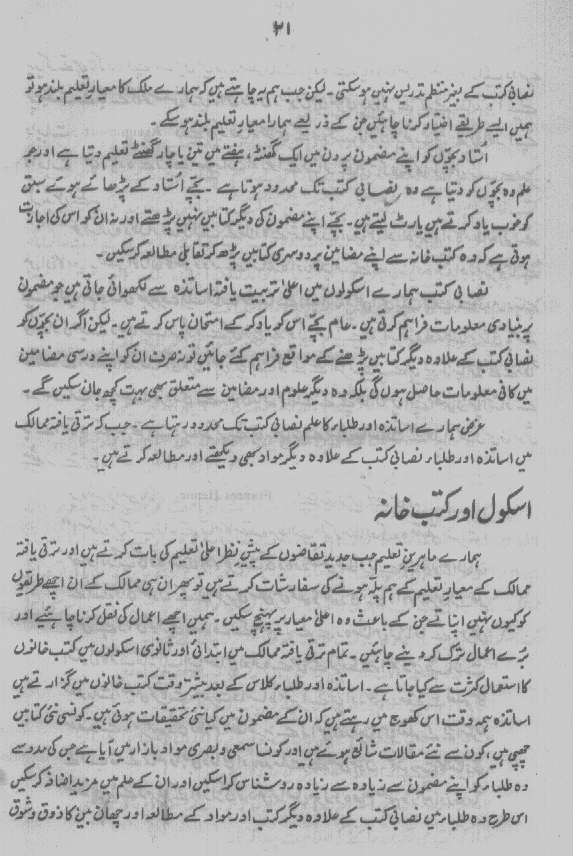 ۲۱
نصابی کتب کے بغیر منظم تدریس نہیں ہو سکتی ۔ لیکن جب ہم یہ چاہتے ہیں کہ ہمارے ملک کا معیار تعلیم بلند ہو تو
ہمیں ایسے طریقے اختیار کرنا چاہئیں جن کے ذریعے ہمارا معیار تعلیم بلند ہو سکے ۔
اُستاد بچّوں کو اپنے مضمون پر دن میں ایک گھنٹہ، ہفتے میں تین یا چار گھنٹے تعلیم دیتا ہے اور جو
علم وہ بچّوں کو دیتا ہے وہ نصابی کتب تک محدود ہوتا ہے ۔ بچّے اُستاد کے پڑھائے ہوئے سبق
کو خوب یاد کرتے ہیں یا رٹ لیتے ہیں ۔ بچّے اپنے مضمون کی دیگر کتابیں نہیں پڑھتے اور نہ ان کو اس کی اجازت
ہوتی ہے کہ وہ کتب خانہ سے اپنے مضامین پر دوسری کتابیں پڑھ کر تقابلی مطالعہ کر سکیں ۔
نصابی کتب ہمارے اسکولوں میں اعلیٰ تربیت یافتہ اساتذہ سے لکھوائی جاتی ہیں جو مضمون
پر بنیادی معلومات فراہم کرتی ہیں ۔ عام بچّے اس کو یاد کر کے امتحان پاس کرتے ہیں ۔ لیکن اگر ان بچّوں کو
نصابی کتب کے علاوہ دیگر کتابیں پڑھنے کے مواقع فراہم کئے جائیں تو نہ صرف ان کو اپنے درسی مضامین
میں کافی معلومات حاصل ہوں گی بلکہ وہ دیگر علوم اور مضامین سے متعلق بھی بہت کچھ جان سکیں گے ۔
غرض ہمارے اساتذہ اور طلباء کا علم نصابی کتب تک محدود رہتا ہے ۔ جب کہ ترقی یافتہ ممالک
میں اساتذہ اور طلباء نصابی کتب کے علاوہ دیگر مواد بھی دیکھتے اور مطالعہ کرتے ہیں ۔
اسکول اور کتب خانہ
ہمارے ماہرین تعلیم جب جدید تقاضوں کے پیش نظر اعلیٰ تعلیم کی بات کرتے ہیں اور ترقی یافتہ
ممالک کے معیار تعلیم کے ہم پلّہ ہونے کی سفارشات کرتے ہیں تو پھر ان ہی ممالک کے ان اچھے طریقوں
کو کیوں نہیں اپناتے جن کے باعث وہ اعلیٰ معیار پر پہنچ سکیں ۔ ہمیں اچھے اعمال کی نقل کرنا چاہئیے اور
بُرے اعمال ترک کر دینے چاہئیں ۔ تمام ترقی یافتہ ممالک میں ابتدائی اور ثانوی اسکولوں میں کتب خانوں
کا استعمال کثرت سے کیا جاتا ہے ۔ اساتذہ اور طلباء کلاس کے بعد بیشتر وقت کتب خانوں میں گزارتے ہیں
اساتذہ ہمہ وقت اس کھوج میں رہتے ہیں کہ ان کے مضمون میں کیا نئی تحقیقات ہوئی ہیں ۔ کونسی نئی کتابیں
چھپی ہیں، کون سے نئے مقالات شائع ہوئے ہیں اور کونسا سمعی و بصری مواد بازار میں آیا ہے جن کی مدد سے
وہ طلباء کو اپنے مضمون سے زیادہ سے زیادہ روشناس کرا سکیں اور ان کے علم میں مزید اضافہ کر سکیں
اس طرح وہ طلباء میں نصابی کتب کے علاوہ دیگر کتب اور مواد کے مطالعہ اور چھان بین کا ذوق و شوق